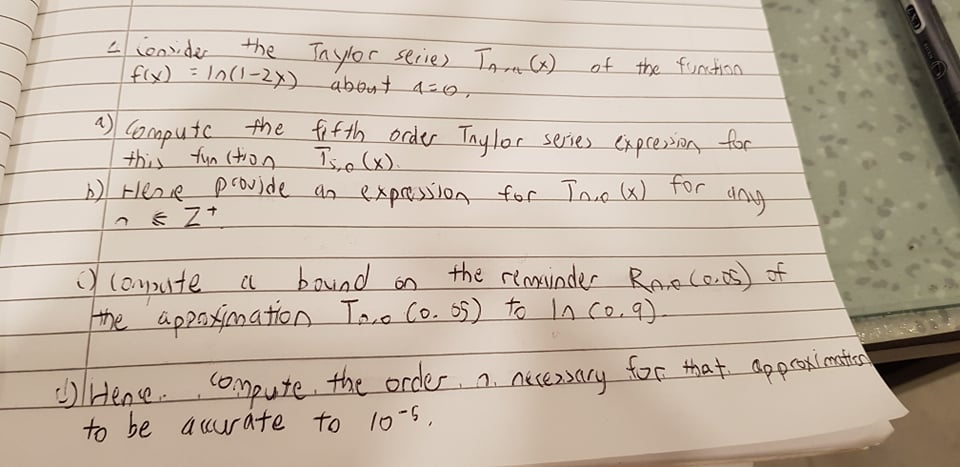 2 Consider the Taylor series Tn,a (x) of the function
f(x) = ln(1-2x) about a=0.
a) Compute the fifth order Taylor series expression for
this function T5,0 (x).
b) Hence provide an expression for Tn,0 (x) for any
n ∈ Z+
c) Compute a bound on the remainder Rn,0 (0.05) of
the approximation Tn,0 (0.05) to ln (0.9).
d) Hence, compute the order n necessary for that approximation
to be accurate to 10⁻⁵.